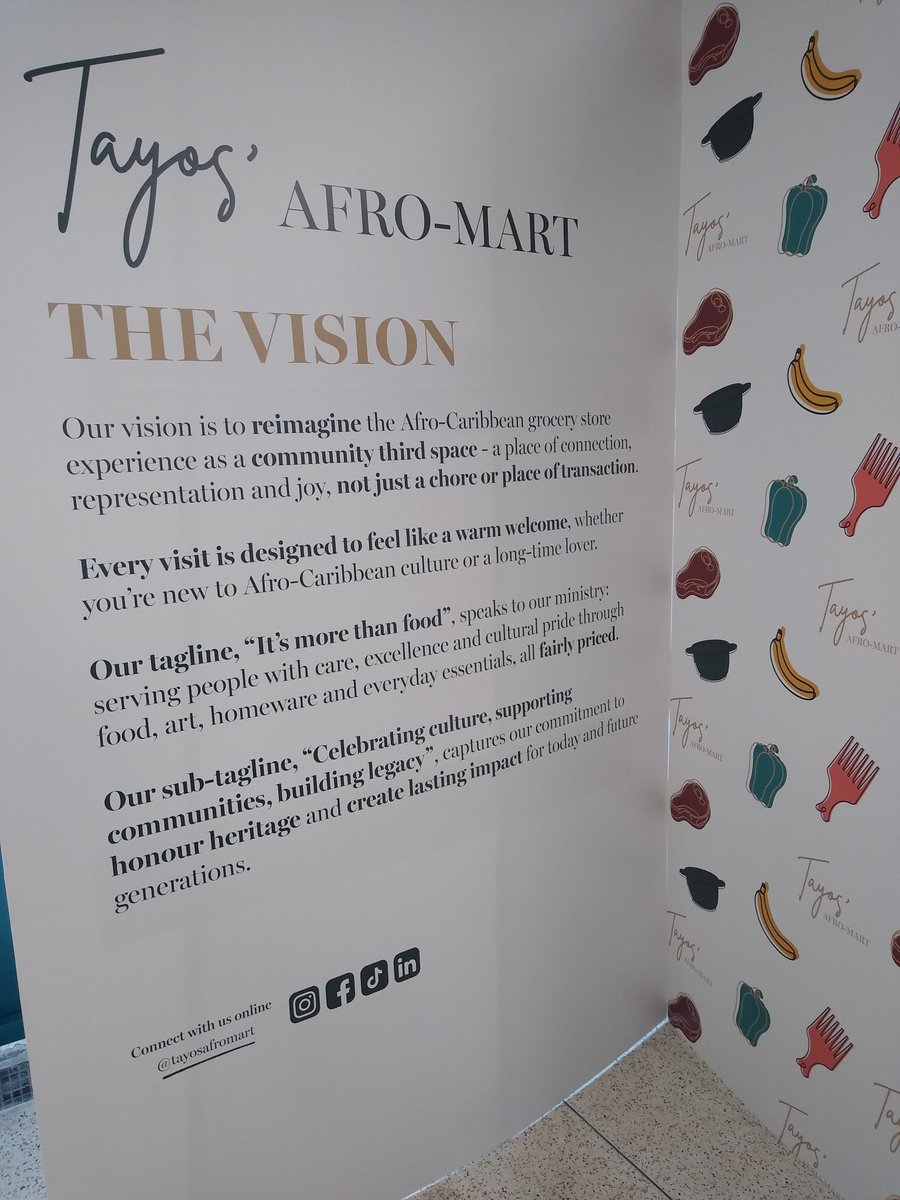 Tayos' AFRO-MART
THE VISION
Our vision is to reimagine the Afro-Caribbean grocery store
experience as a community third space - a place of connection,
representation and joy, not just a chore or place of transaction.
Every visit is designed to feel like a warm welcome, whether
you're new to Afro-Caribbean culture or a long-time lover.
Our tagline, “It's more than food”, speaks to our ministry:
serving people with care, excellence and cultural pride through
food, art, homeware and everyday essentials, all fairly priced.
Our sub-tagline, “Celebrating culture, supporting
communities, building legacy”, captures our commitment to
honour heritage and create lasting impact for today and future
generations.
Connect with us online
@tayosafromart
Tayos'
AFRO-MART
Tayos'
AFRO-
Tayos'
AFRO-MART
Tayos'
AFRO-MART
Tayos'
AFRO-MART
Tayos'
AFRO-MART
Tayos'
AFRO-MART
Tayos'